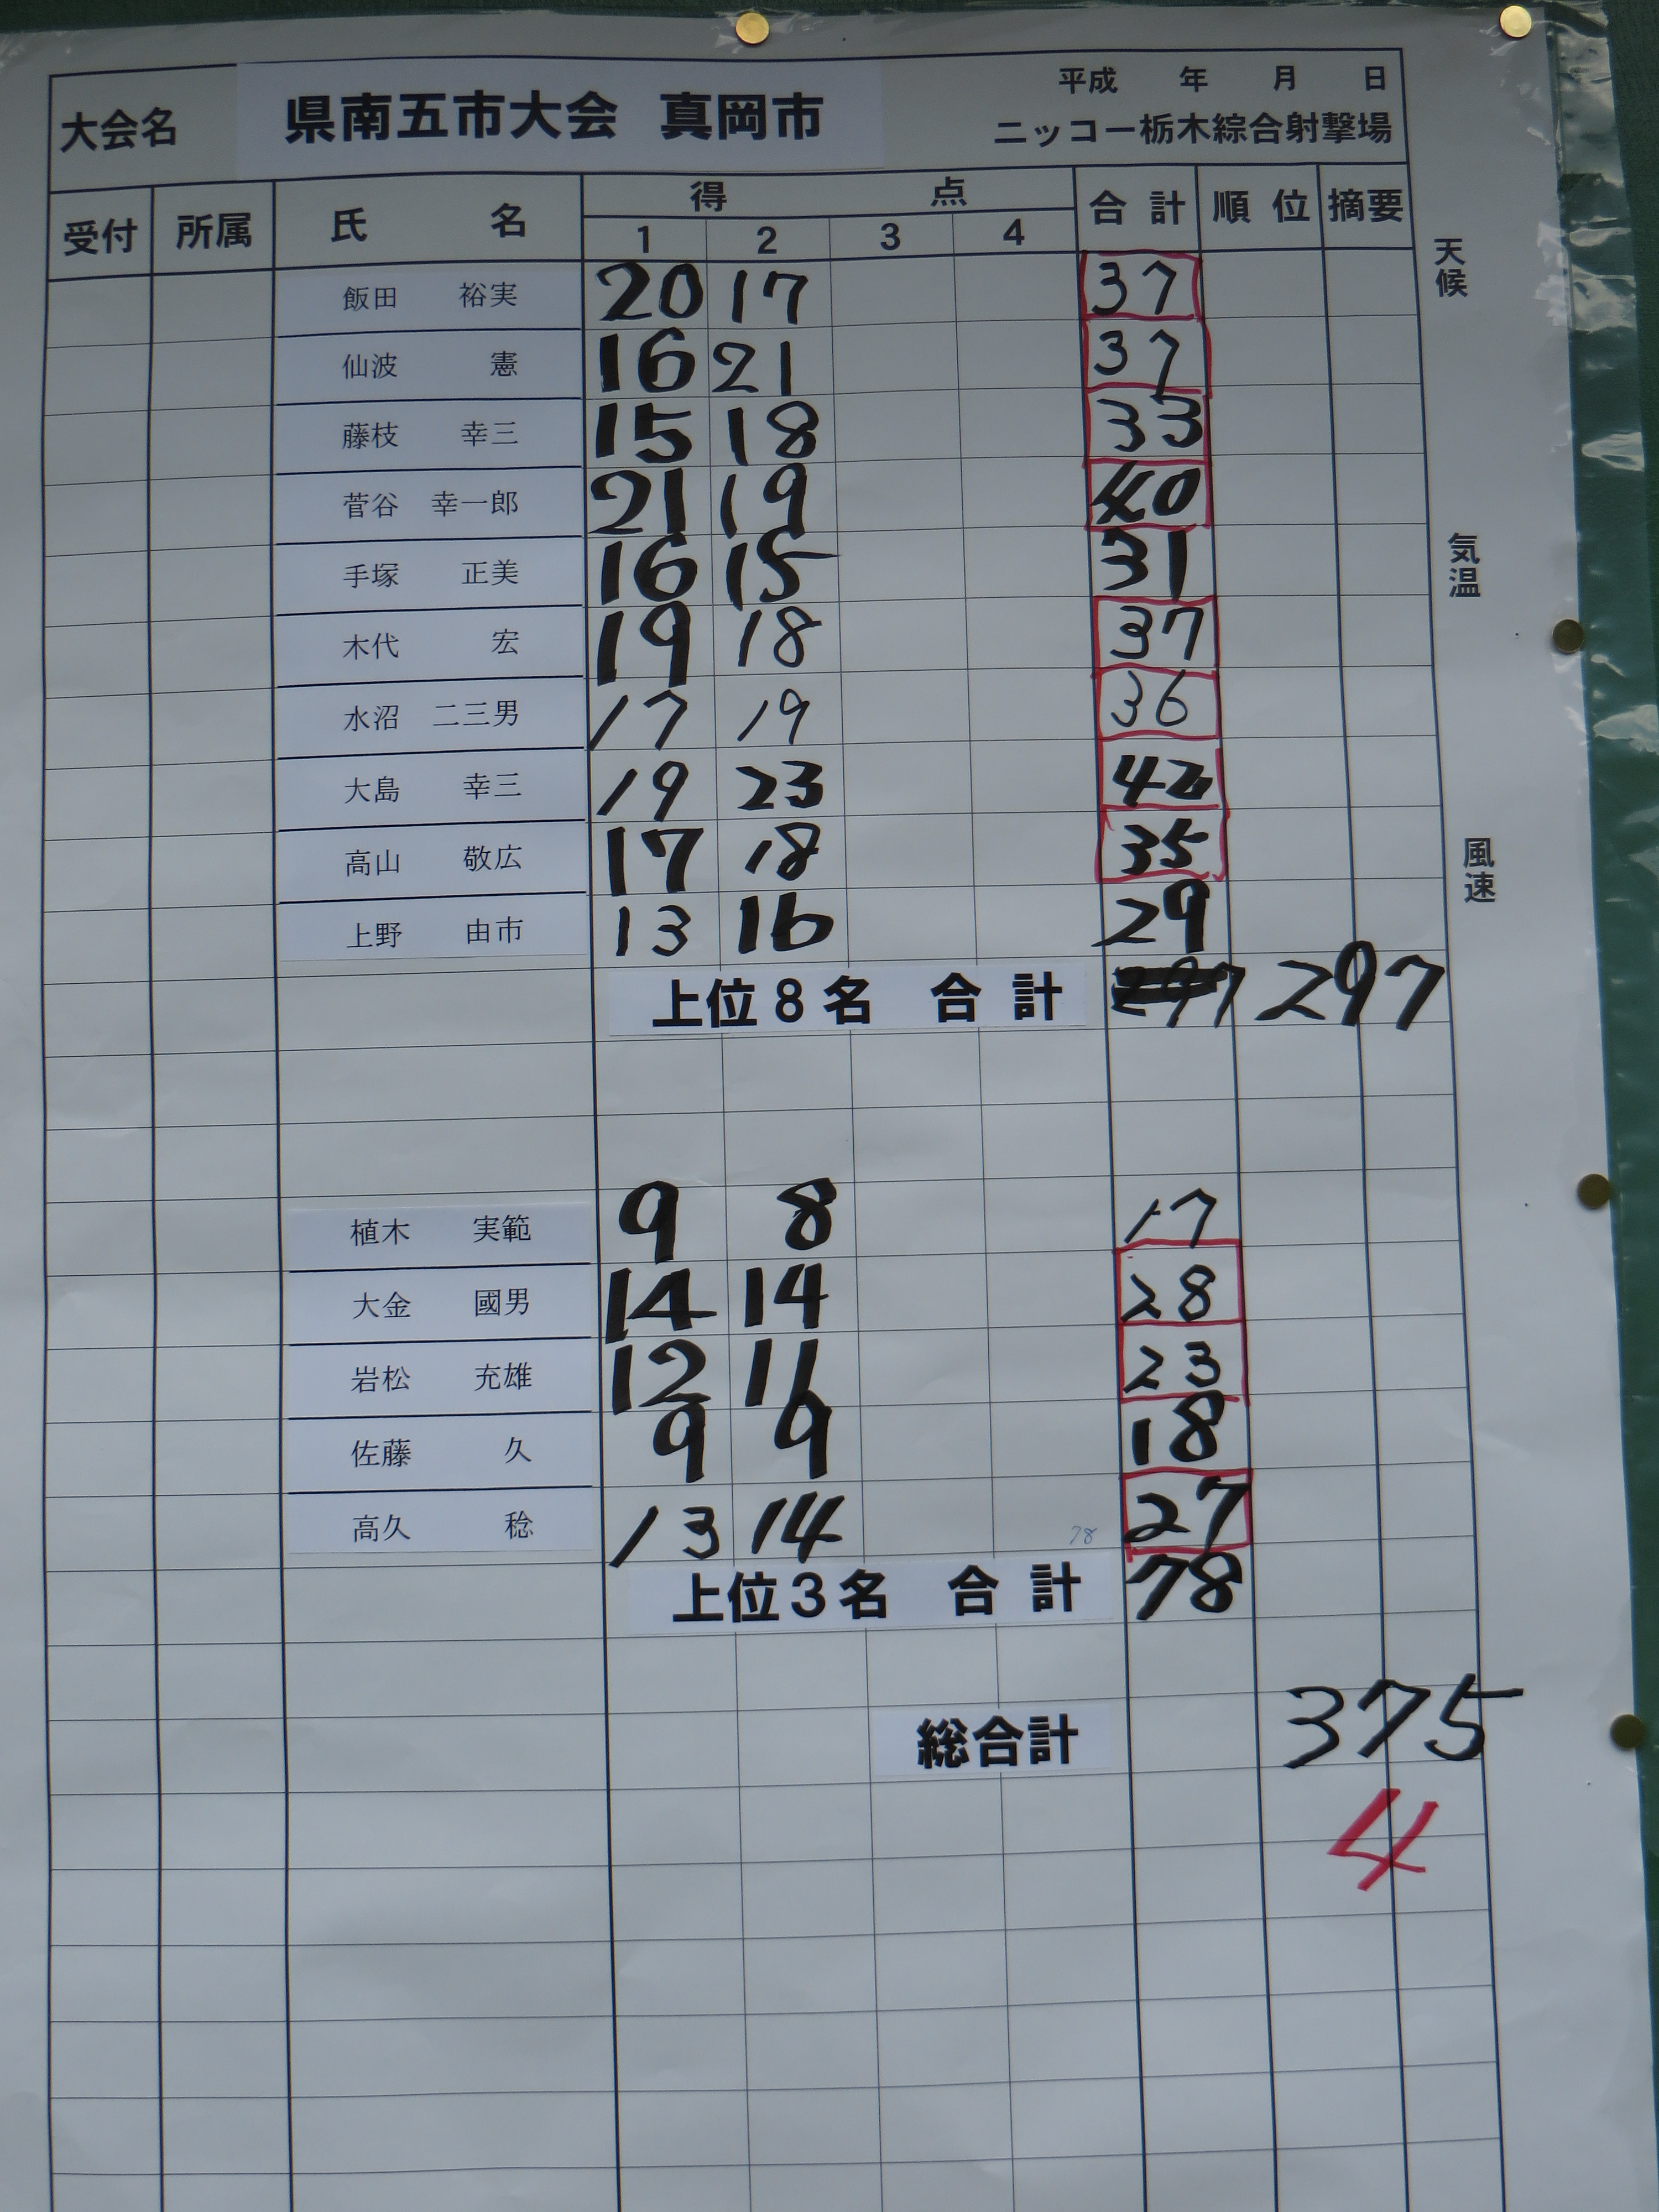 平成 年 月 日
大会名 県南五市大会 真岡市 ニッコー栃木綜合射撃場
受付 所属 氏 名 得 点 合 計 順 位 摘要
1 2 3 4
天候
飯田 裕実 20 17 37
仙波 憲 16 21 37
藤枝 幸三 15 18 33
菅谷 幸一郎 21 19 40
手塚 正美 16 15 31
気温
木代 宏 19 18 37
水沼 二三男 17 19 36
大島 幸三 19 23 42
高山 敬広 17 18 35
風速
上野 由市 13 16 29
上位8名 合 計 297 297
植木 実範 9 8 17
大金 國男 14 14 28
岩松 充雄 12 11 23
佐藤 久 9 9 18
高久 稔 13 14 78 27
上位3名 合 計 78
総合計 375
4